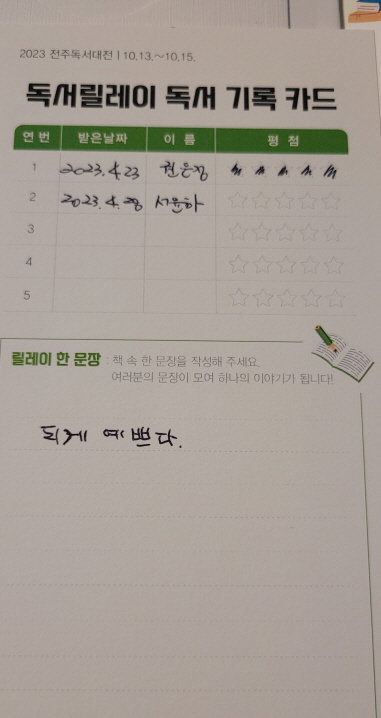 2023 전주독서대전 | 10.13.~10.15.
독서릴레이 독서 기록 카드
연번 받은날짜 이 름 평 점
1 2023.4.23 권은정
2 2023.4.28 서윤하
3
4
5
릴레이 한 문장 : 책 속 한 문장을 작성해 주세요.
여러분의 문장이 모여 하나의 이야기가 됩니다!
되게 예쁘다.